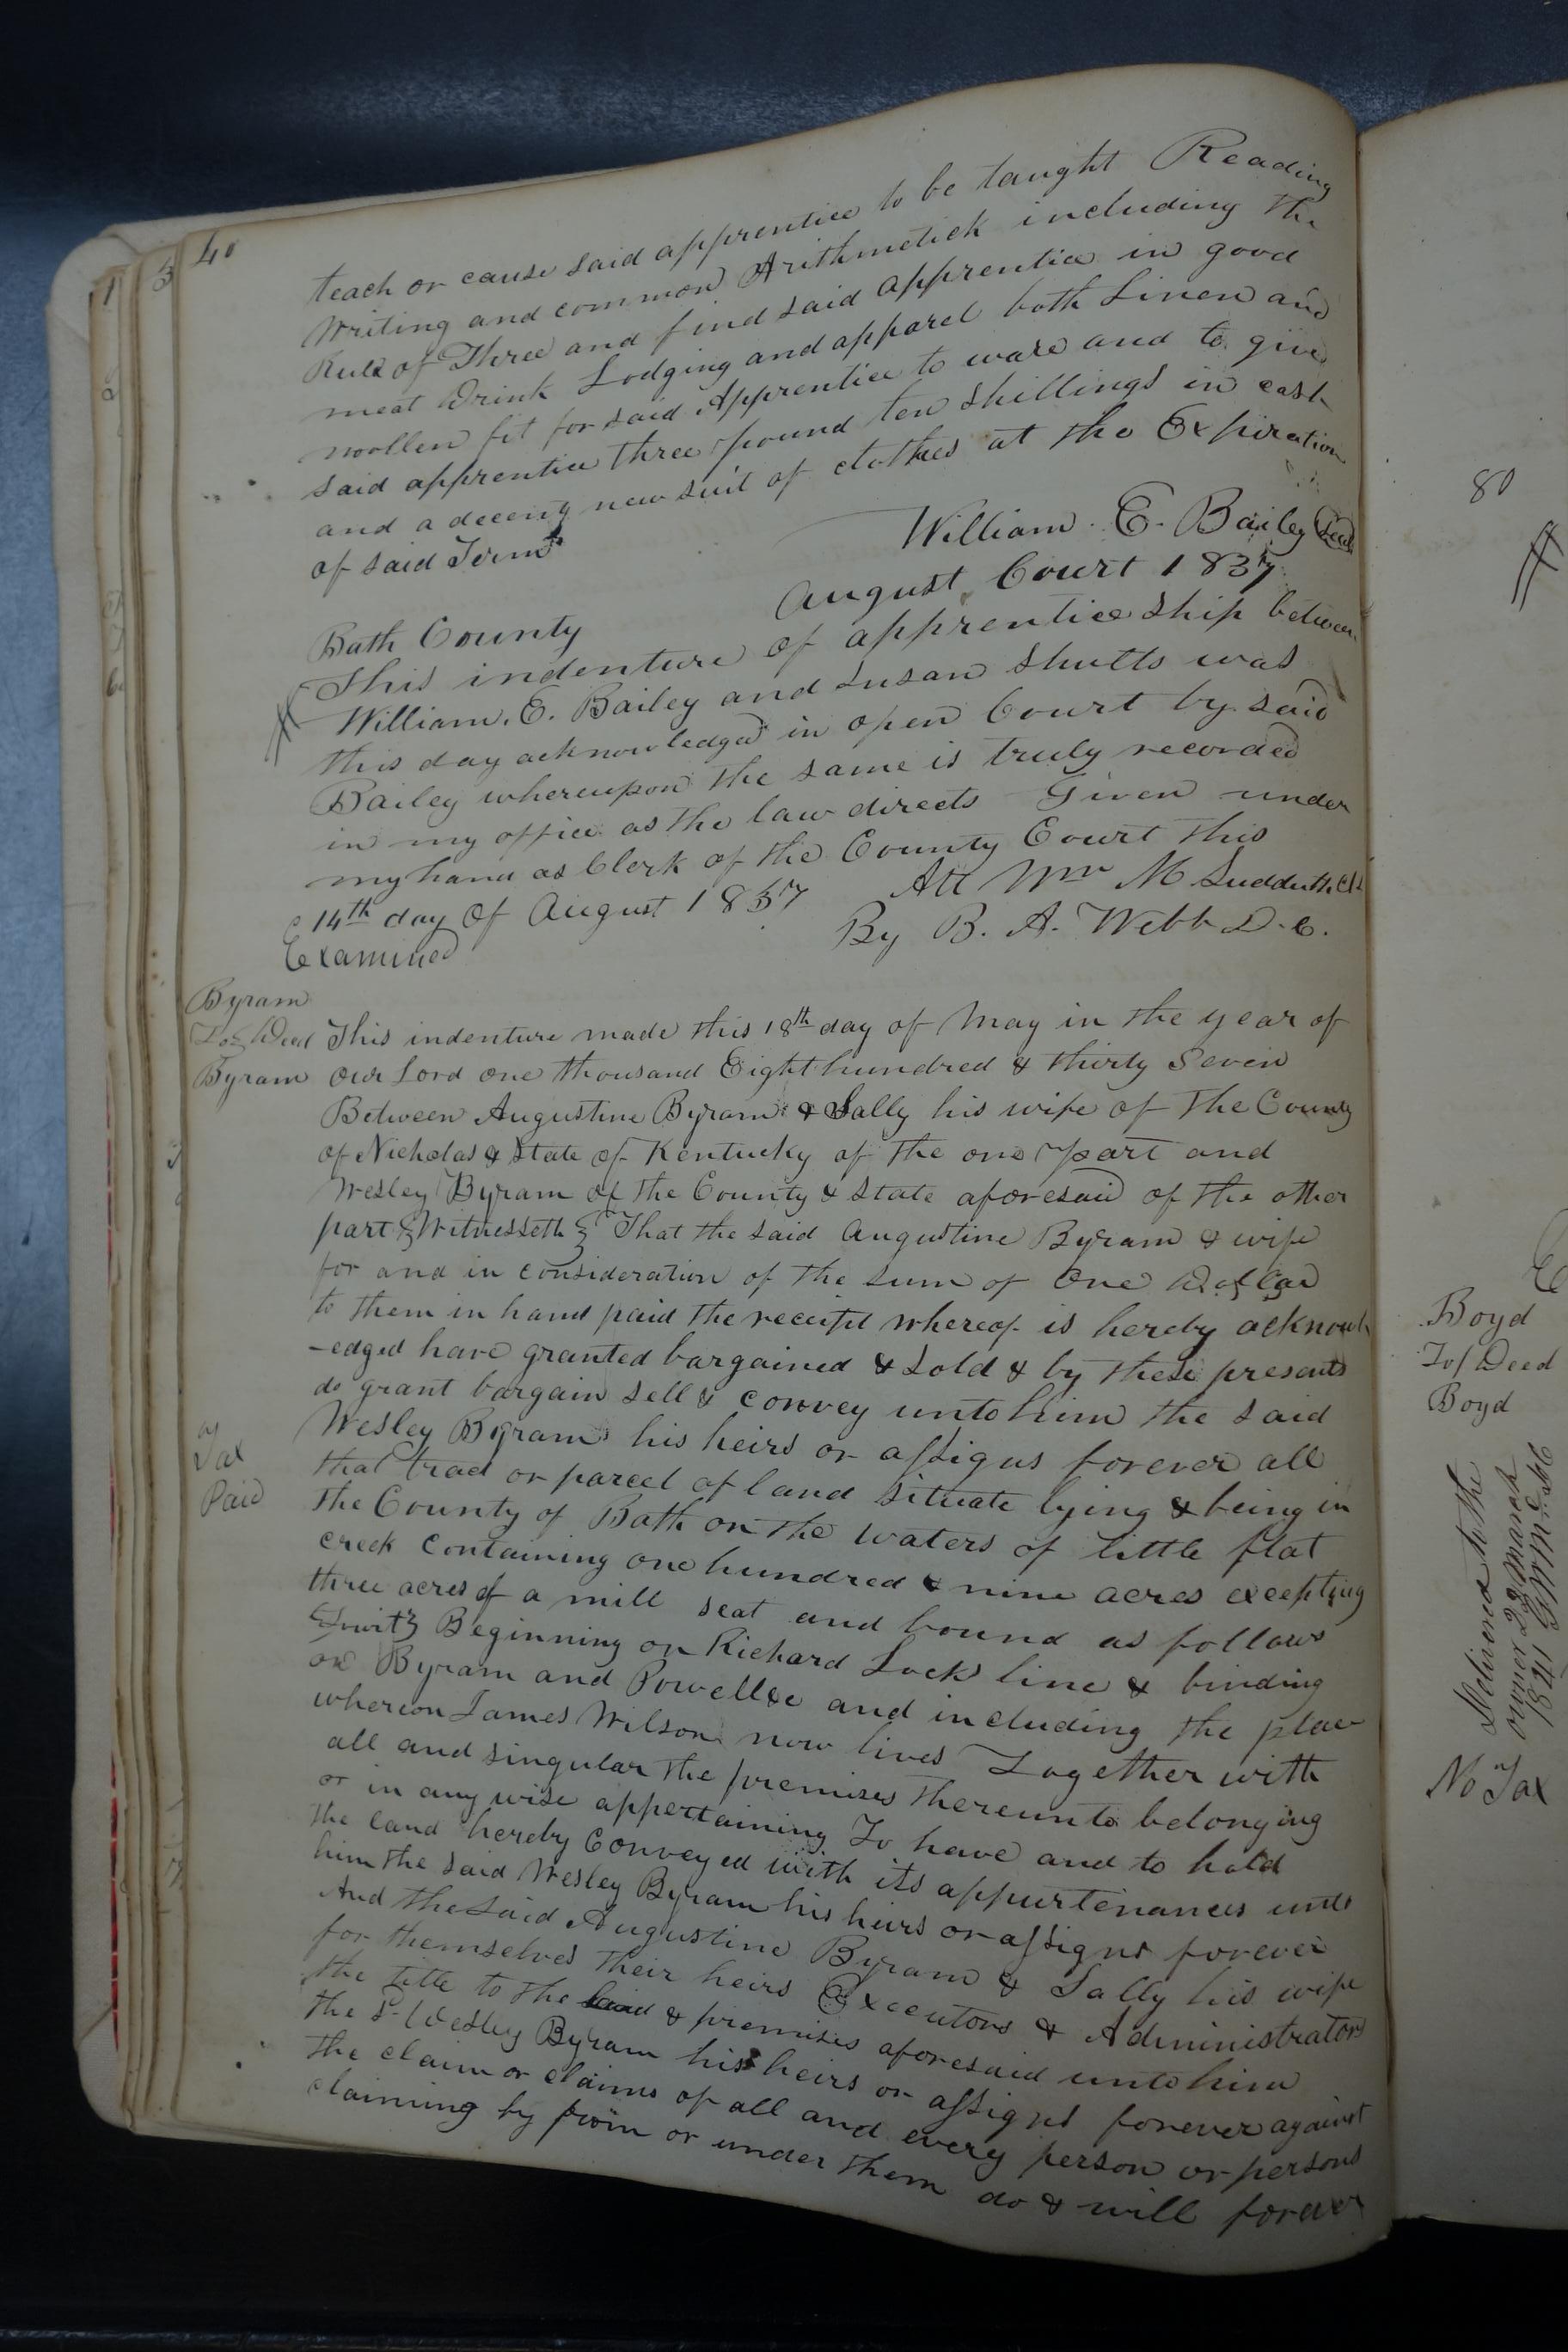 40
teach or cause said apprentice to be taught Reading
Writing and common Arithmetick including the
Rule of Three and find said apprentice in good
meat Drink Lodging and apparel both Linen and
woollen fit for said Apprentice to ware and to give
said apprentice three pound ten shillings in cash
and a deceny new suit of clothes at the Expiration
of said Term
William E. Bailey Seal
Bath County August Court 1837
This indenture of apprenticeship between
William. E. Bailey and Susan Shutts was
this day acknowledged in open Court by said
Bailey whereupon the same is truly recorded
in my office as the law directs Given under
my hand as Clerk of the County Court this
14th day of August 1837 Att Wm M Sudduth Clk
Examined By B. A. Webb D.C.
Byram
To Deed
Byram
This indenture made this 18th day of May in the year of
our Lord one thousand Eight hundred & thirty Seven
Between Augustine Byram & Sally his wife of the County
of Nicholas & State of Kentucky of the one part and
Wesley Byram of the County & State aforesaid of the other
part Witnesseth That the said Augustine Byram & wife
for and in consideration of the sum of One Dollar
to them in hand paid the receipt whereof is hereby acknowl
-edged have granted bargained & sold & by these presents
do grant bargain sell & convey unto him the said
Wesley Byram his heirs or assigns forever all
Tax
Paid
that tract or parcel of land situate lying & being in
the County of Bath on the waters of little flat
creek containing one hundred & nine acres excepting
three acres of a mill seat and bound as follows
towit Beginning on Richard Locks line & binding
on Byram and Powell &c and including the place
whereon James Wilson now lives Together with
all and singular the premises thereunto belonging
or in any wise appertaining To have and to hold
the land hereby conveyed with its appurtenances unto
him the said Wesley Byram his heirs or assigns forever
And the said Augustine Byram & Sally his wife
for themselves their heirs Executors & Administrators
the title to the land & premises aforesaid unto him
the sd Wesley Byram his heirs or assigns forever against
the claim or claims of all and every person or persons
claiming by from or under them do & will forever
80
Boyd
To/ Deed
Boyd
Delivered to the
owner 22 March
1841
No Tax